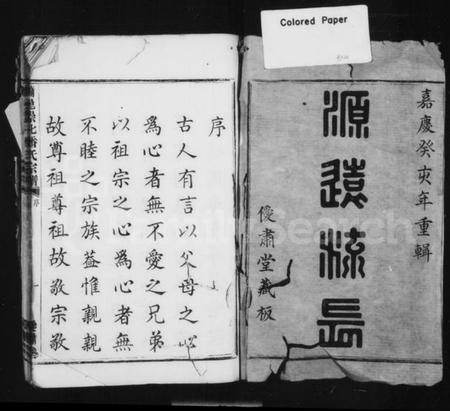 Colored Paper
嘉慶癸亥年重輯
源遠流長
僾肅堂藏板
序
古人有言以父母之心
為心者無不愛之兄弟
以祖宗之心為心者無
不睦之宗族葢惟親親
故尊祖尊祖故敬宗敬